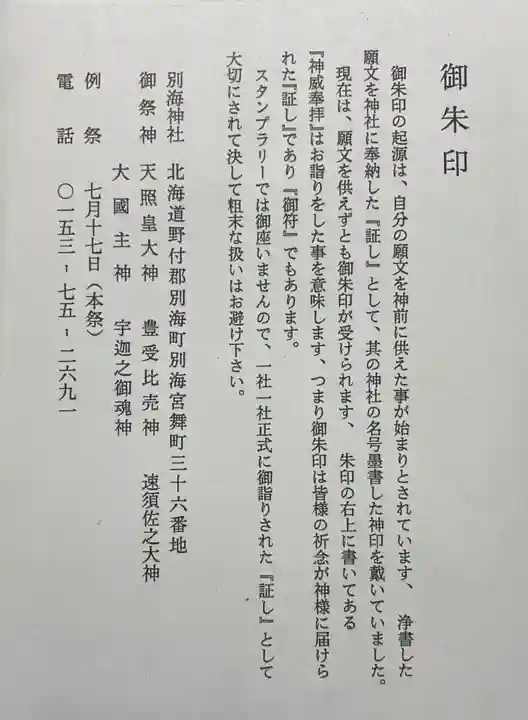 御朱印
御朱印の起源は、自分の願文を神前に供えた事が始まりとされています、 浄書した
願文を神社に奉納した『証し』として、其の神社の名号墨書した神印を戴いていました。
現在は、願文を供えずとも御朱印が受けられます、 朱印の右上に書いてある
『神威奉拝』はお詣りをした事を意味します、つまり御朱印は皆様の祈念が神様に届けら
れた『証し』であり『御符』でもあります。
スタンプラリーでは御座いませんので、一社一社正式に御詣りされた『証し』として
大切にされて決して粗末な扱いはお避け下さい。
別海神社 北海道野付郡別海町別海宮舞町三十六番地
御祭神 天照皇大神 豊受比売神 速須佐之大神
大國主神 宇迦之御魂神
例祭 七月十七日（本祭）
電話 〇一五三-七五-二六九一